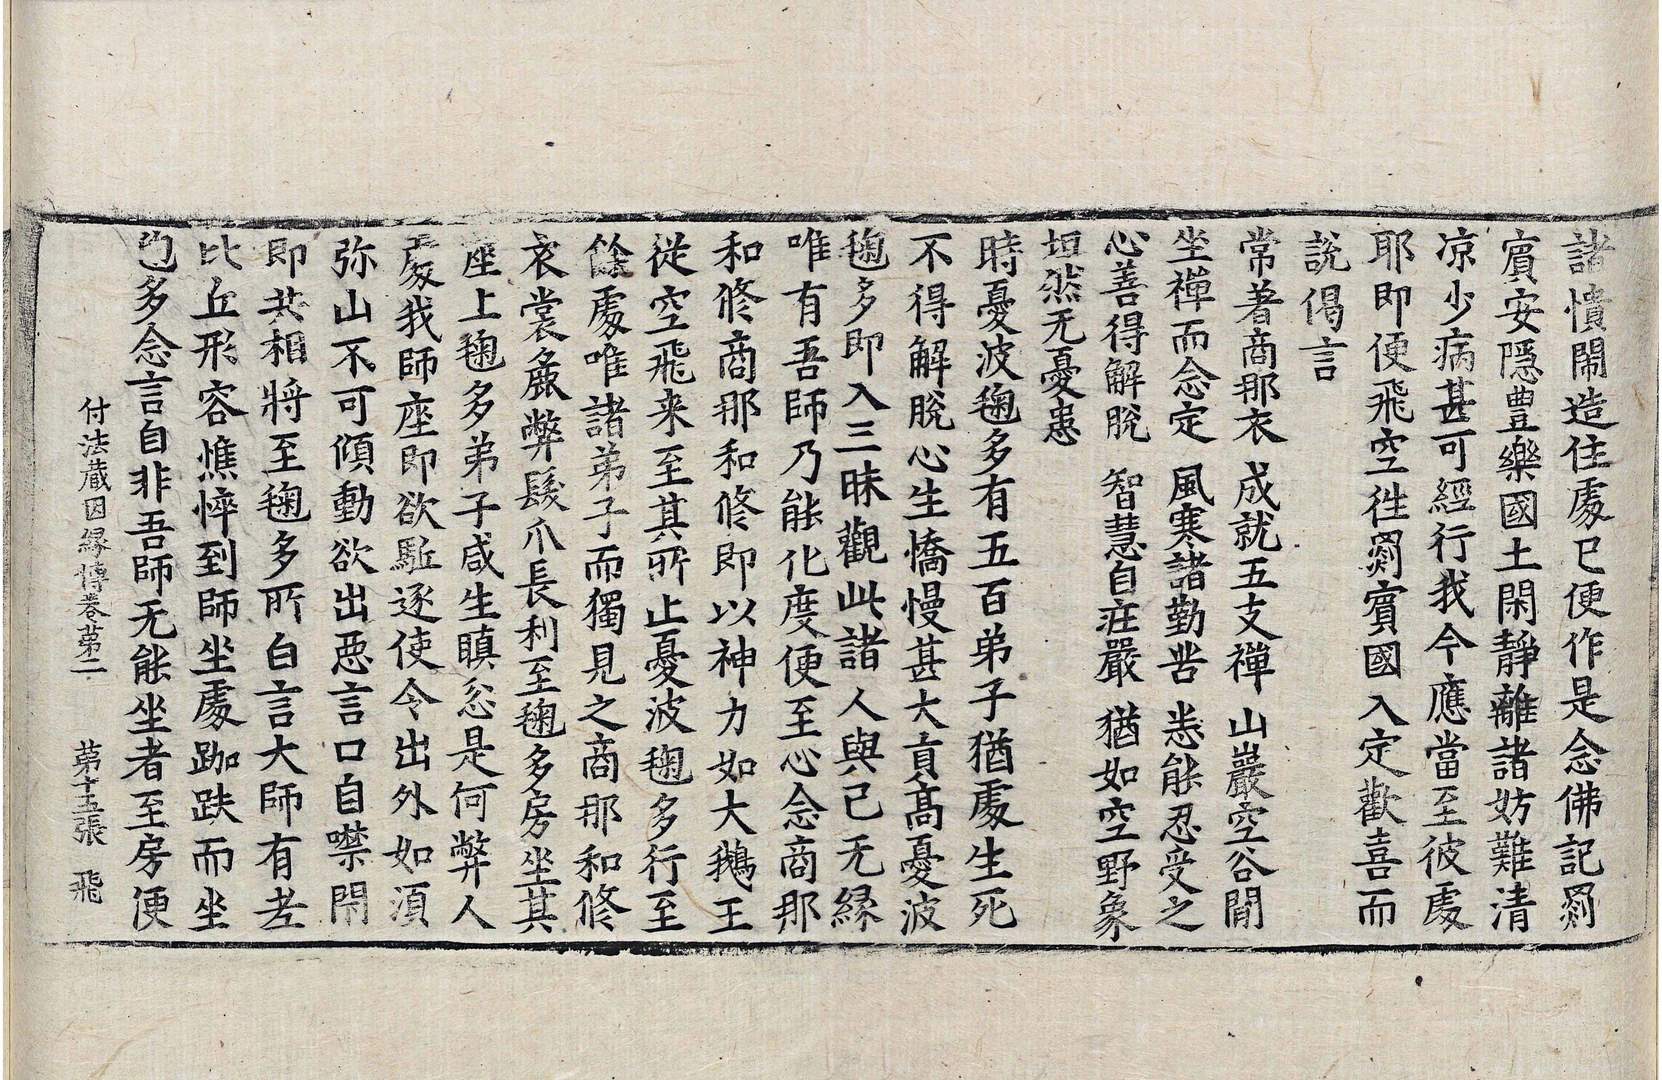 諸憒閙造住䖏已便作是念佛記罽
賔安隠豊樂國土閑靜離諸妨難清
凉少病甚可經行我今應當至彼䖏
耶即便飛空徃罽賔國入定歡喜而
說偈言
常著商那衣　成就五支禪　山巖空谷閒
坐禪而念定　風寒諸勤苦　悉能忍受之
心善得解脫　智慧自莊嚴　猶如空野象
坦然无憂患
時憂波毱多有五百弟子猶䖏生死
不得解脫心生憍慢甚大貢髙憂波
毱多即入三昧觀此諸人與己无緣
唯有吾師乃能化度便至心念商那
和修商那和修即以神力如大鵝王
從空飛来至其所止憂波毱多行至
餘䖏唯諸弟子而獨見之商那和修
衣裳麁弊髮爪長利至毱多房坐其
座上毱多弟子咸生瞋忿是何弊人
䖏我師座即欲駈逐使令出外如湏
弥山不可傾動欲出惡言口自噤閇
即共相將至毱多所白言大師有老
比丘形容憔悴到師坐䖏跏趺而坐
毱多念言自非吾師无能坐者至房便
付法藏因緣傳卷苐二　苐十五張　飛